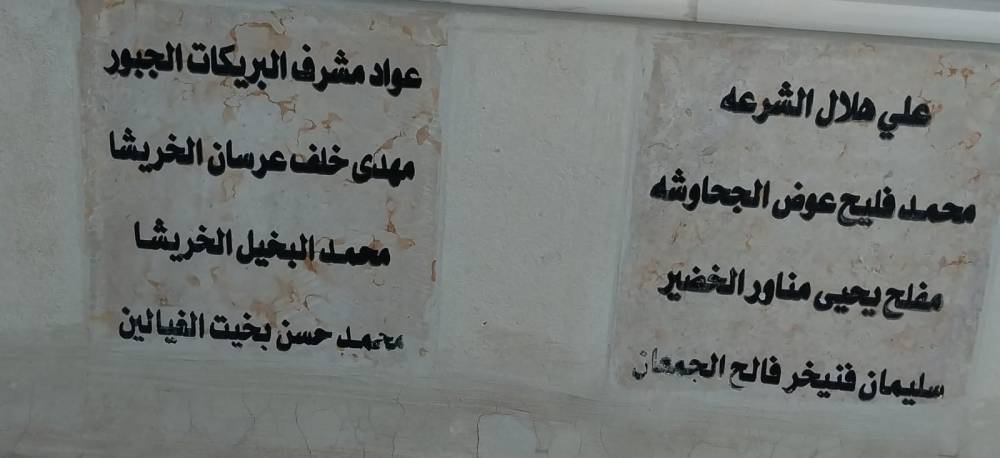 علي هلال الشرعه
محمد فليح عوض الجحاوشه
مفلح يحيى مناور الخضير
سليمان فنيخر فالح الجمعان
عواد مشرف البريكات الجبور
مهدى خلف عرسان الخريشا
محمد البخيل الخريشا
محمد حسن بخيت الفيالين